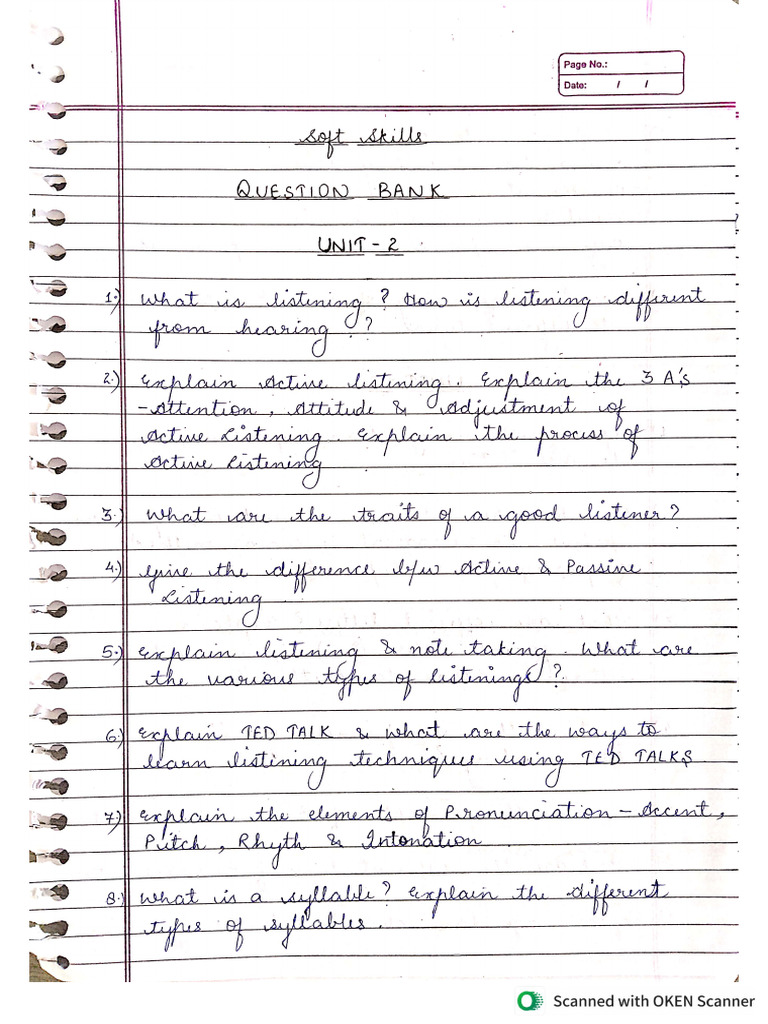 Page No.:
Date: / /
Soft Skills
QUESTION BANK
UNIT - 2
1.) What is listening? How is listening different
from hearing?
2.) Explain Active listening. Explain the 3 A's
- Attention, Attitude & Adjustment of
Active Listening. Explain the process of
Active Listening
3.) What are the traits of a good listener?
4.) Give the difference b/w Active & Passive
Listening.
5.) Explain listening & note taking. What are
the various types of listenings?
6.) Explain TED TALK & what are the ways to
learn listining techniques using TED TALKS
7.) Explain the elements of Pronunciation - Accent,
Pitch, Rhyth & Intonation.
8.) What is a syllable? Explain the different
types of syllables.
Scanned with OKEN Scanner